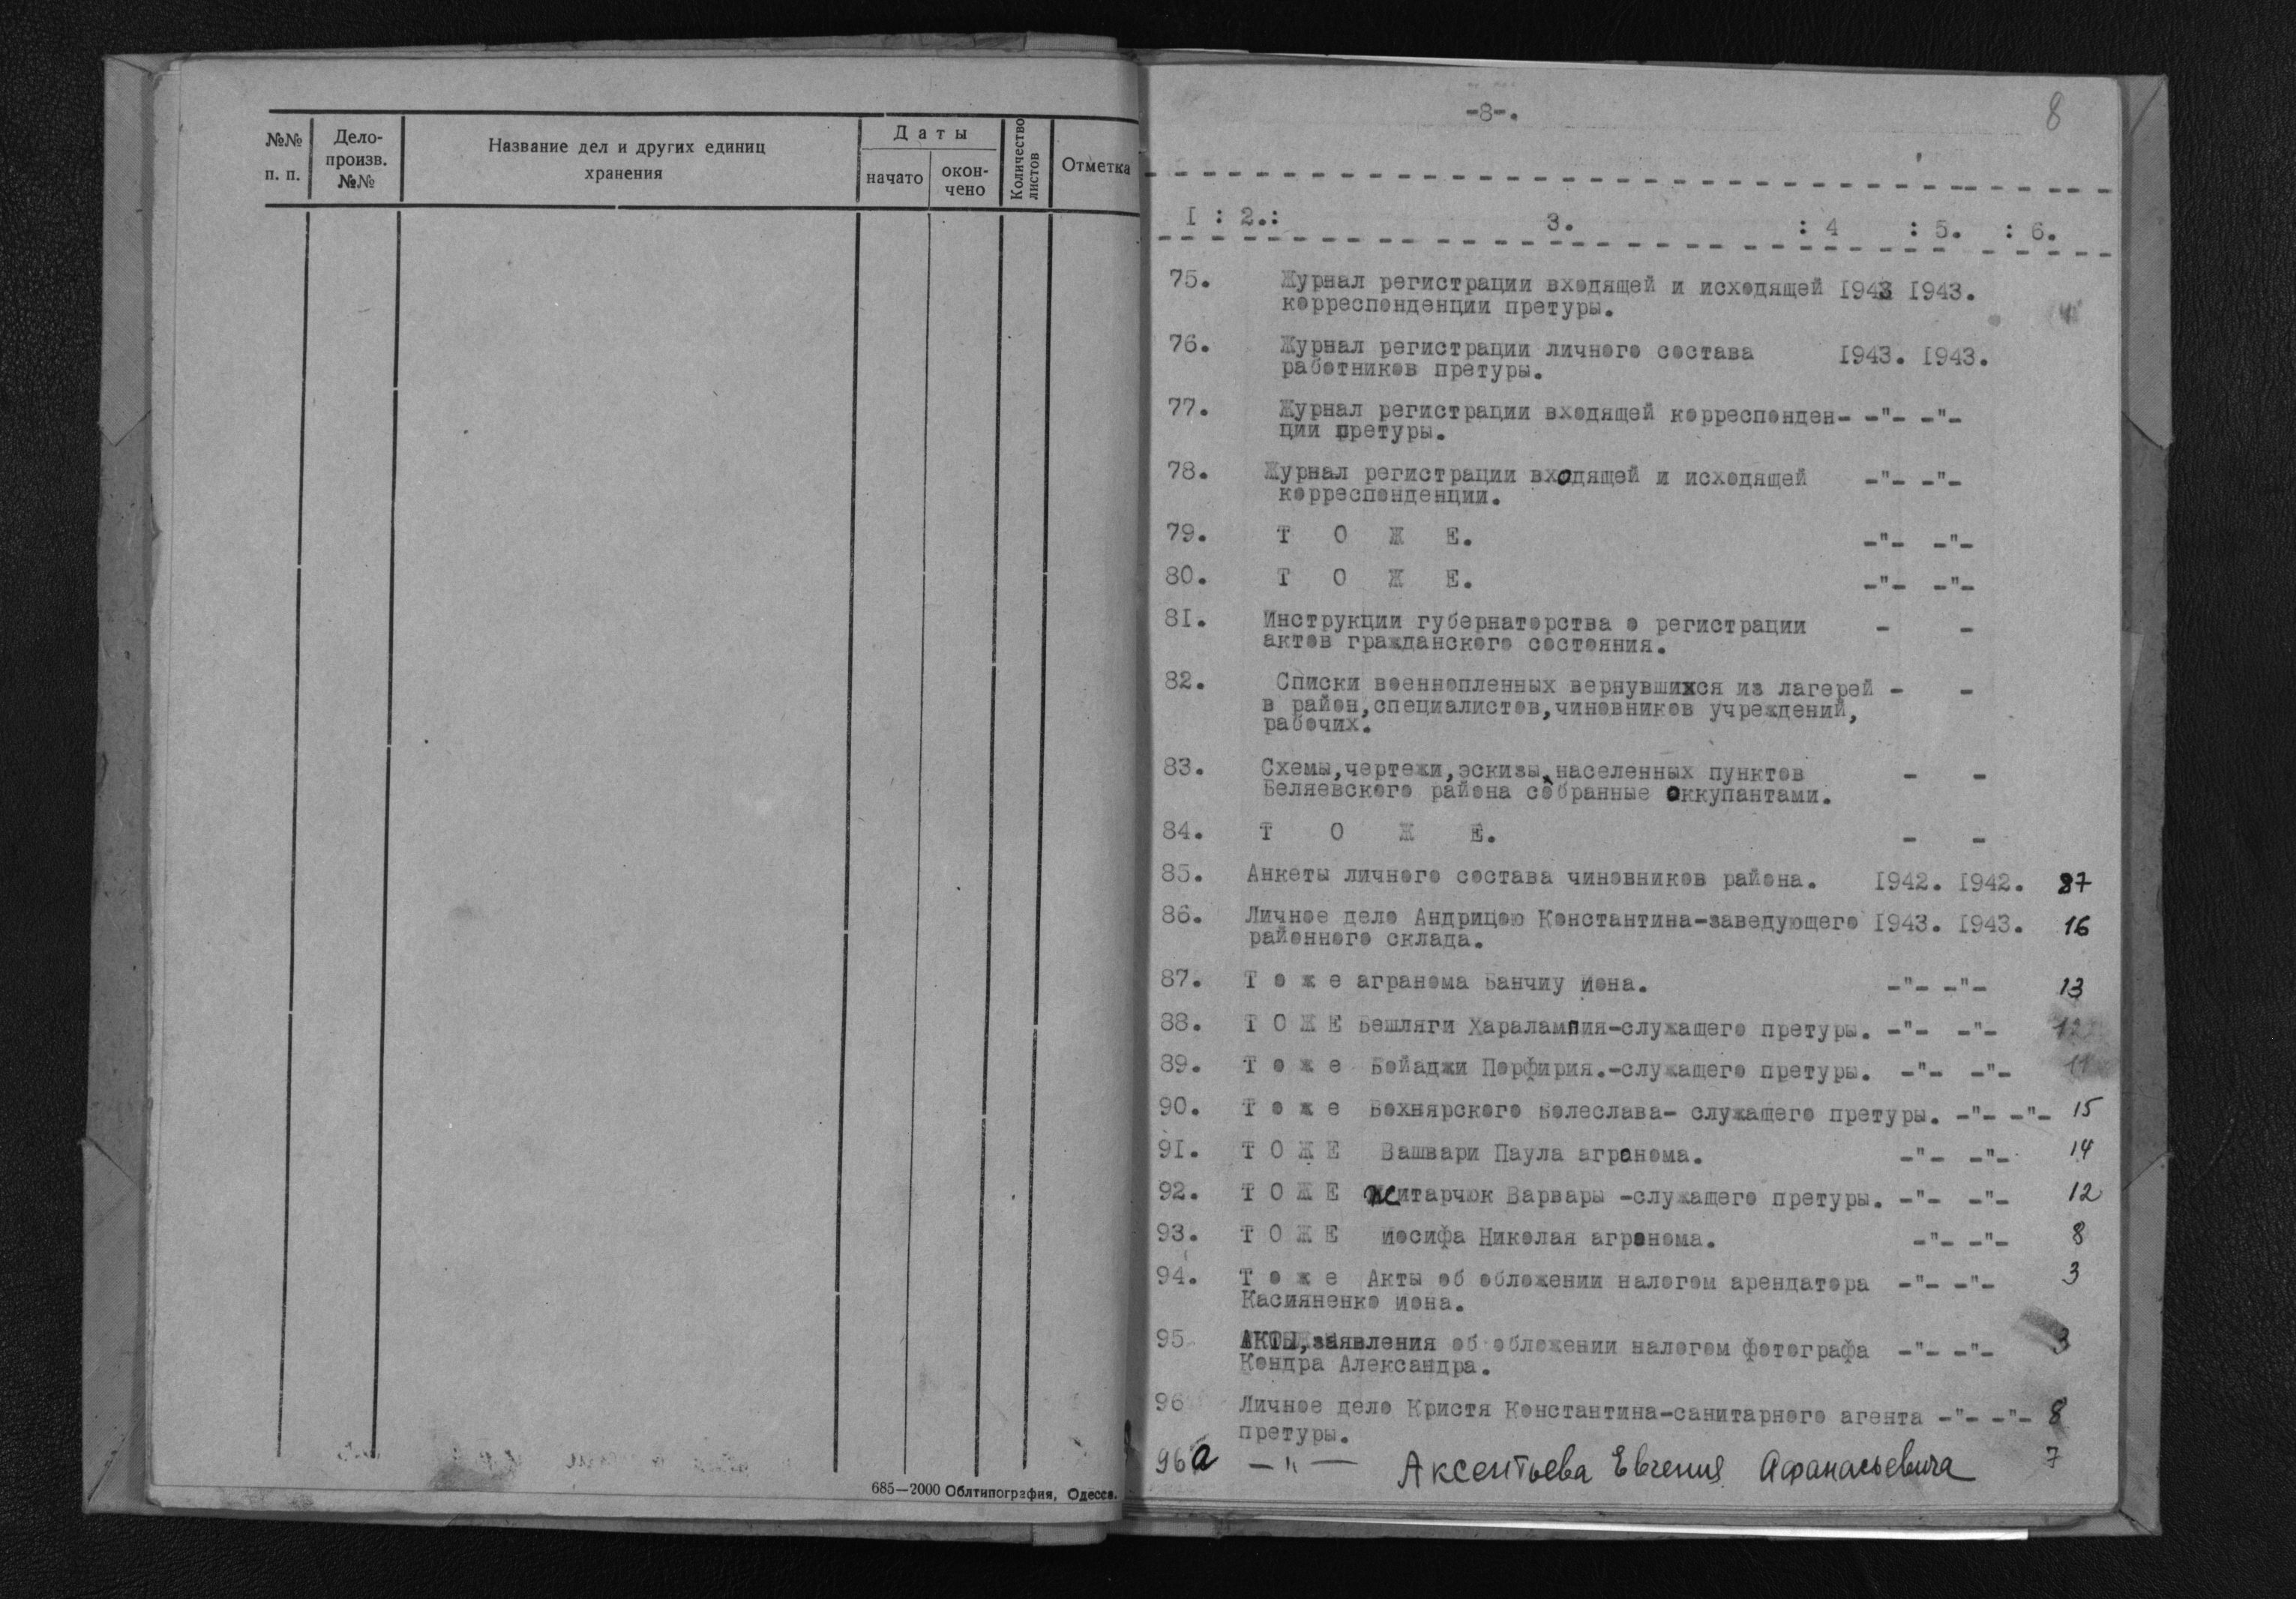 №№ п. п.
Дело-
произв.
№№
Название дел и других единиц
хранения
Даты
начато
окон-
чено
Количество
листов
Отметка
685—2000 Облтипография, Одесса.
-8-.
8
I : 2.: 3. : 4 : 5. : 6.
75. Журнал регистрации входящей и исходящей 1943 1943.
корреспонденции претуры.
76. Журнал регистрации личного состава 1943. 1943.
работников претуры.
77. Журнал регистрации входящей корреспонден- -"- -"-
ции претуры.
78. Журнал регистрации входящей и исходящей -"- -"-
корреспонденции.
79. Т О Ж Е. -"- -"-
80. Т О Ж Е. -"- -"-
81. Инструкции губернаторства о регистрации - -
актов гражданского состояния.
82. Списки военнопленных вернувшихся из лагерей - -
в район,специалистов,чиновников учреждений,
рабочих.
83. Схемы,чертежи,эскизы,населенных пунктов - -
Беляевского района собранные оккупантами.
84. Т О Ж Е. - -
85. Анкеты личного состава чиновников района. 1942. 1942. 87
86. Личное дело Андрицою Константина-заведующего 1943. 1943. 16
районного склада.
87. Т о ж е агранома Банчиу Иона. -"- -"- 13
88. Т О Ж Е Бешляги Харалампия-служащего претуры. -"- -"- 12
89. Т о ж е Бойаджи Порфирия.-служащего претуры. -"- -"- 11
90. Т о ж е Бохнярского Болеслава- служащего претуры. -"- -"- 15
91. Т О Ж Е Вашвари Паула агронома. -"- -"- 14
92. Т О Ж Е Житарчюк Варвары -служащего претуры. -"- -"- 12
93. Т О Ж Е Иосифа Николая агронома. -"- -"- 8
94. Т о ж е Акты об обложении налогом арендатора -"- -"- 3
Касияненко Иона.
95 АКТЫ,заявления об обложении налогом фотографа -"- -"- 3
Кондра Александра.
96 Личное дело Кристя Константина-санитарного агента -"- -"- 8
претуры.
96а -"- Аксентьева Евгения Афанасьевича 7